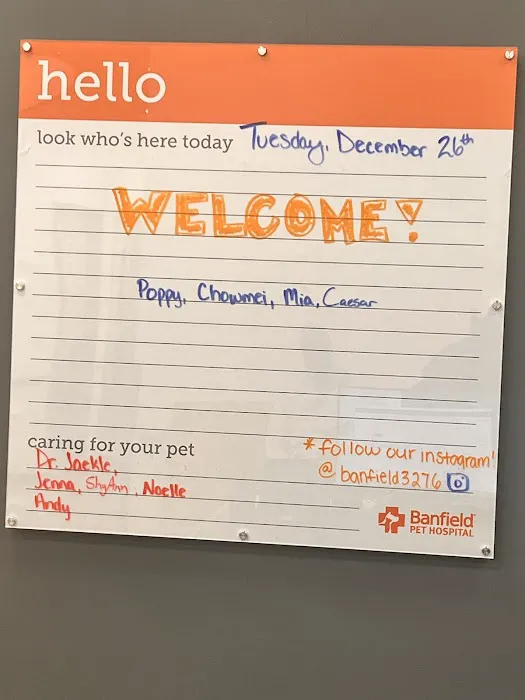 hello
look who's here today Tuesday, December 26th
WELCOME!
Poppy, Chowmei, Mia, Caesar
caring for your pet
Dr. Jaekle,
Jenna, ShyAnn, Noelle
Andy
*follow our instagram!
@banfield3276
Banfield
PET HOSPITAL